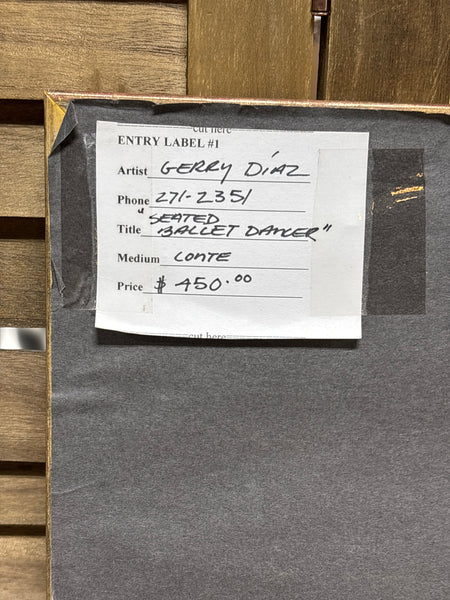 cut here
ENTRY LABEL #1
Artist GERRY DÍAZ
Phone 271-2351
"SEATED
Title BALLET DANCER"
Medium CONTE
Price $ 450.00
cut here